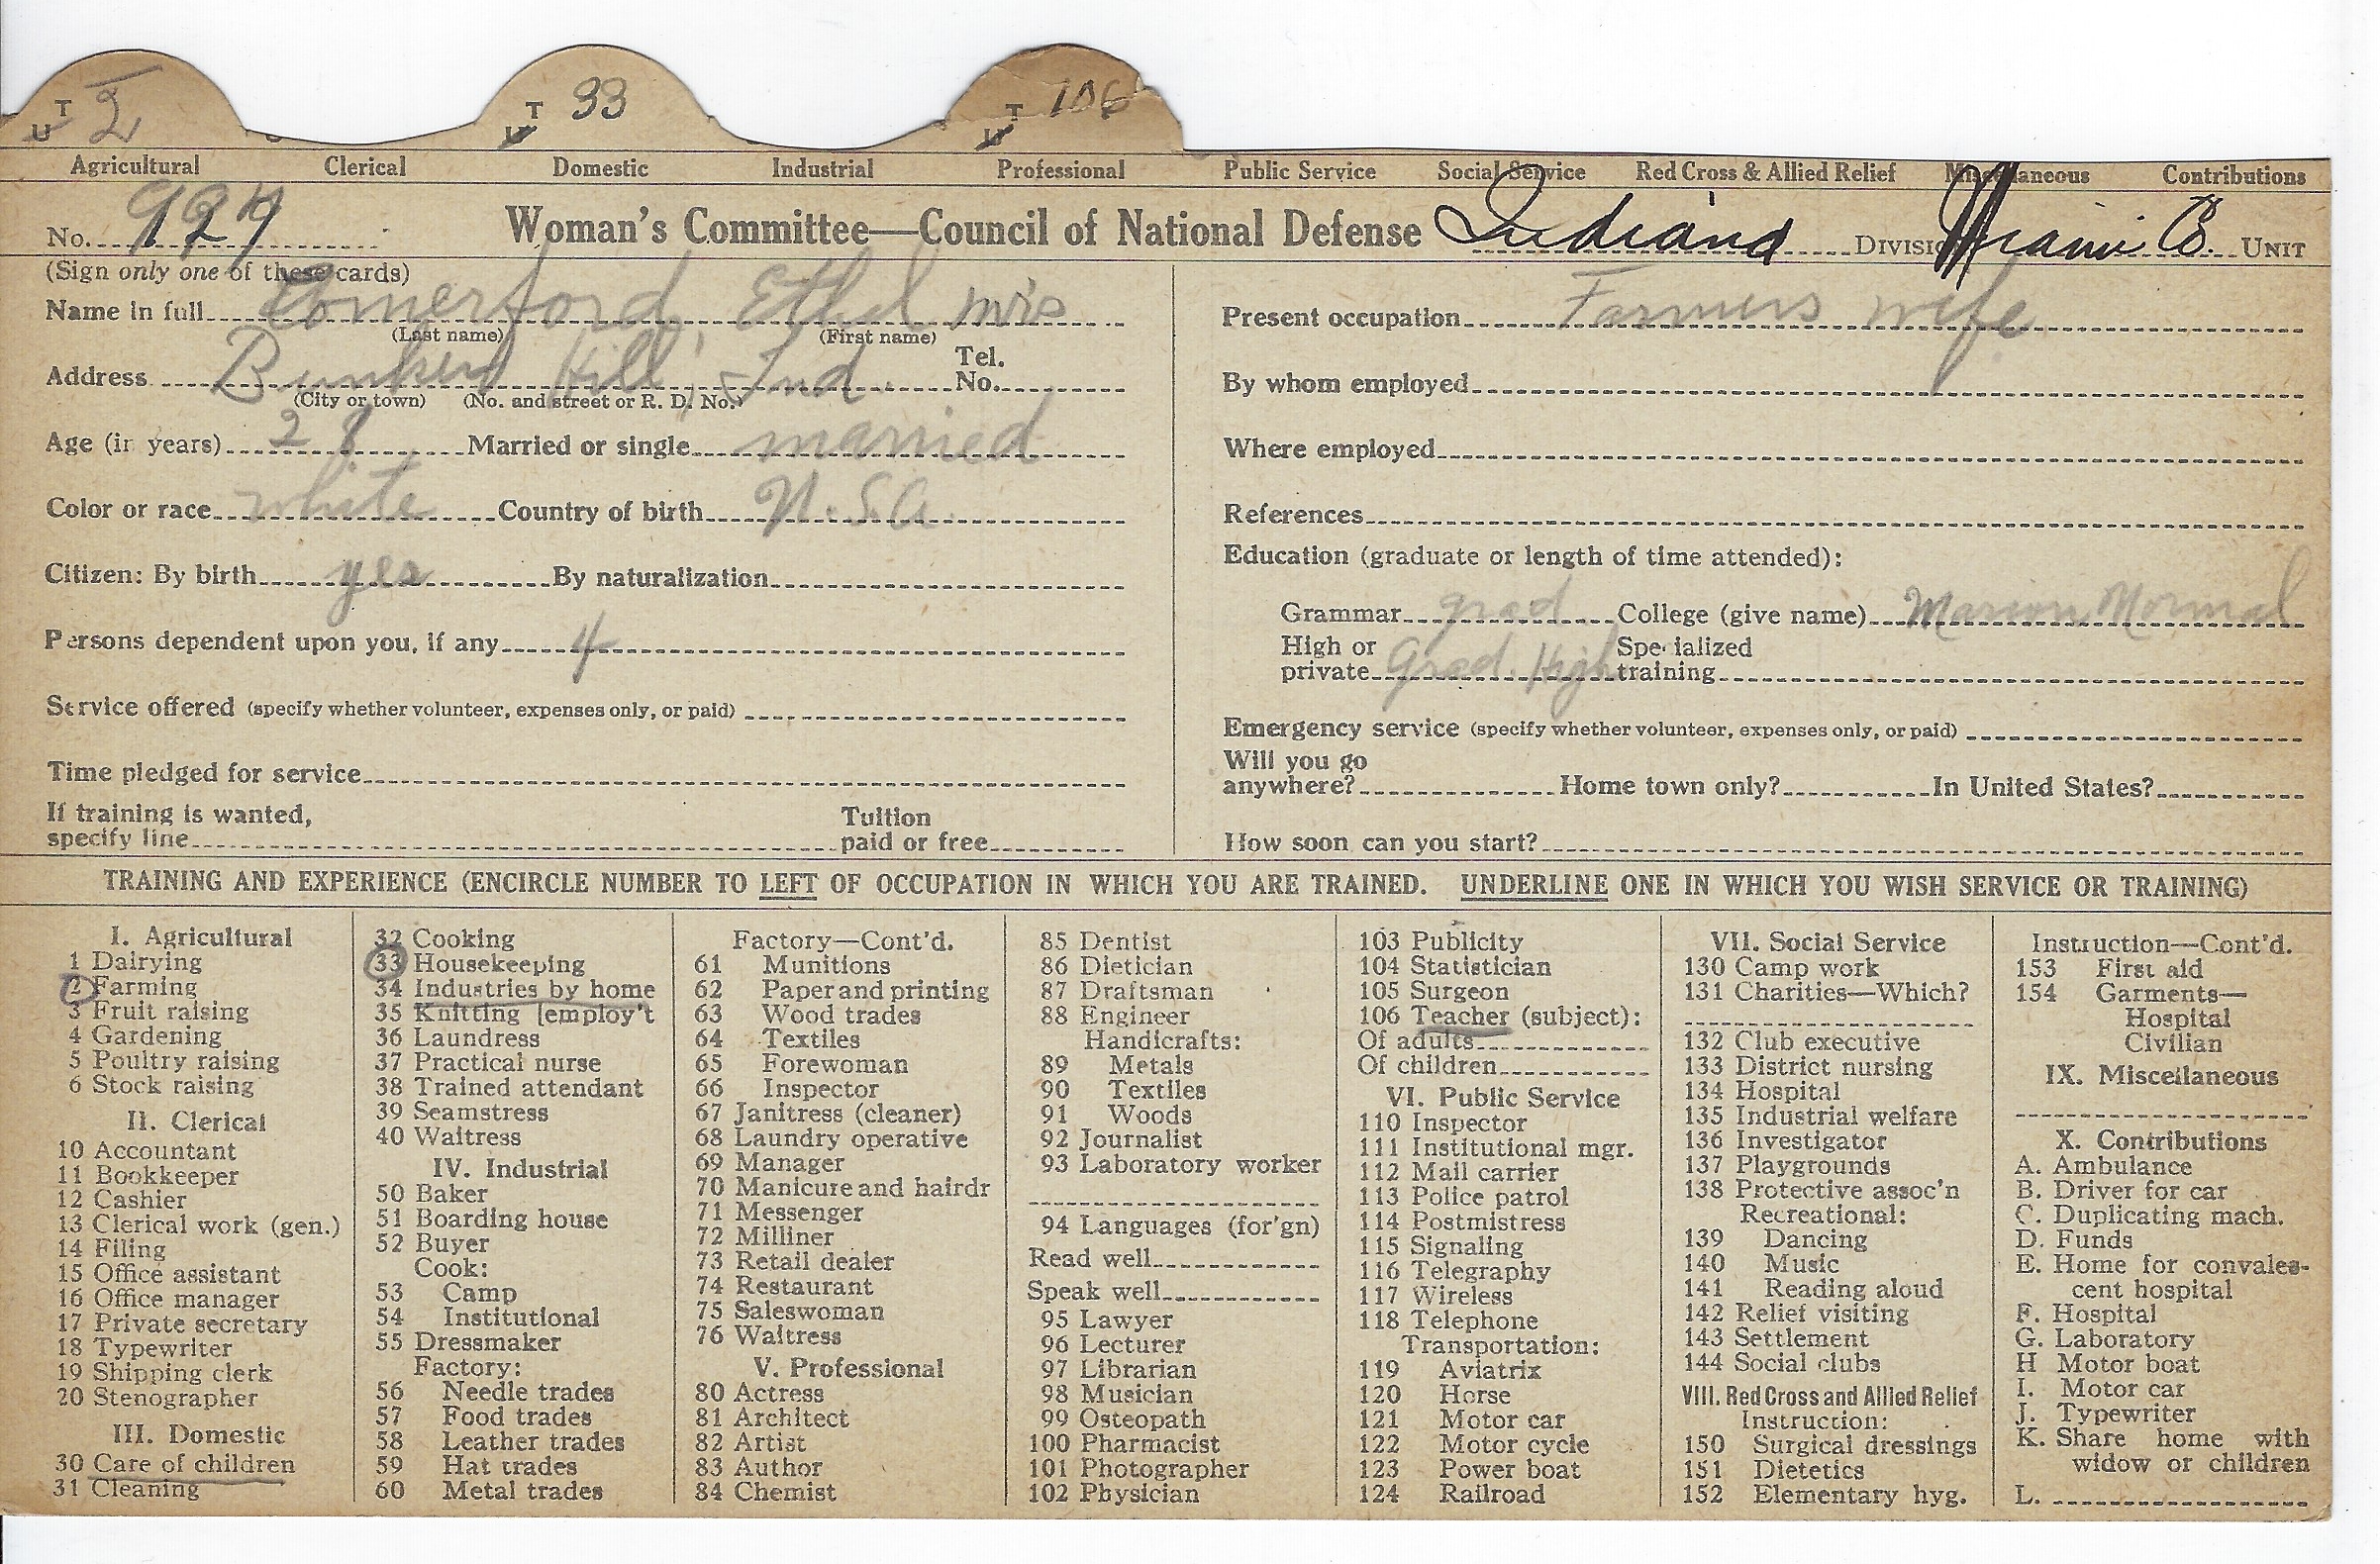 T U 2 T U 33 T U 106
Agricultural Clerical Domestic Industrial Professional Public Service Social Service Red Cross & Allied Relief Miscellaneous Contributions
No. 924 Woman's Committee—Council of National Defense Indiana DIVISION Miami Co. UNIT
(Sign only one of these cards)
Name in full Comerford, Ethel Mrs
(Last name) (First name)
Address Bunker Hill, Ind. Tel. No.
(City or town) (No. and street or R. D. No.)
Age (in years) 28 Married or single married
Color or race white Country of birth U.S.A.
Citizen: By birth yes By naturalization
Persons dependent upon you, if any 4
Service offered (specify whether volunteer, expenses only, or paid)
Time pledged for service
If training is wanted,
specify line Tuition paid or free
Present occupation Farmers wife
By whom employed
Where employed
References
Education (graduate or length of time attended):
Grammar grad College (give name) Marion Normal
High or private Grad. High Specialized training
Emergency service (specify whether volunteer, expenses only, or paid)
Will you go
anywhere? Home town only? In United States?
How soon can you start?
TRAINING AND EXPERIENCE (ENCIRCLE NUMBER TO LEFT OF OCCUPATION IN WHICH YOU ARE TRAINED. UNDERLINE ONE IN WHICH YOU WISH SERVICE OR TRAINING)
I. Agricultural
1 Dairying
2 Farming
3 Fruit raising
4 Gardening
5 Poultry raising
6 Stock raising
II. Clerical
10 Accountant
11 Bookkeeper
12 Cashier
13 Clerical work (gen.)
14 Filing
15 Office assistant
16 Office manager
17 Private secretary
18 Typewriter
19 Shipping clerk
20 Stenographer
III. Domestic
30 Care of children
31 Cleaning
32 Cooking
33 Housekeeping
34 Industries by home
35 Knitting [employ't
36 Laundress
37 Practical nurse
38 Trained attendant
39 Seamstress
40 Waitress
IV. Industrial
50 Baker
51 Boarding house
52 Buyer
Cook:
53 Camp
54 Institutional
55 Dressmaker
Factory:
56 Needle trades
57 Food trades
58 Leather trades
59 Hat trades
60 Metal trades
Factory—Cont'd.
61 Munitions
62 Paper and printing
63 Wood trades
64 Textiles
65 Forewoman
66 Inspector
67 Janitress (cleaner)
68 Laundry operative
69 Manager
70 Manicure and hairdr
71 Messenger
72 Milliner
73 Retail dealer
74 Restaurant
75 Saleswoman
76 Waitress
V. Professional
80 Actress
81 Architect
82 Artist
83 Author
84 Chemist
85 Dentist
86 Dietician
87 Draftsman
88 Engineer
Handicrafts:
89 Metals
90 Textiles
91 Woods
92 Journalist
93 Laboratory worker
94 Languages (for'gn)
Read well
Speak well
95 Lawyer
96 Lecturer
97 Librarian
98 Musician
99 Osteopath
100 Pharmacist
101 Photographer
102 Physician
103 Publicity
104 Statistician
105 Surgeon
106 Teacher (subject):
Of adults
Of children
VI. Public Service
110 Inspector
111 Institutional mgr.
112 Mail carrier
113 Police patrol
114 Postmistress
115 Signaling
116 Telegraphy
117 Wireless
118 Telephone
Transportation:
119 Aviatrix
120 Horse
121 Motor car
122 Motor cycle
123 Power boat
124 Railroad
VII. Social Service
130 Camp work
131 Charities—Which?
132 Club executive
133 District nursing
134 Hospital
135 Industrial welfare
136 Investigator
137 Playgrounds
138 Protective assoc'n
Recreational:
139 Dancing
140 Music
141 Reading aloud
142 Relief visiting
143 Settlement
144 Social clubs
VIII. Red Cross and Allied Relief
Instruction:
150 Surgical dressings
151 Dietetics
152 Elementary hyg.
Instruction—Cont'd.
153 First aid
154 Garments—
Hospital
Civilian
IX. Miscellaneous
X. Contributions
A. Ambulance
B. Driver for car
C. Duplicating mach.
D. Funds
E. Home for convales-
cent hospital
F. Hospital
G. Laboratory
H Motor boat
I. Motor car
J. Typewriter
K. Share home with
widow or children
L.